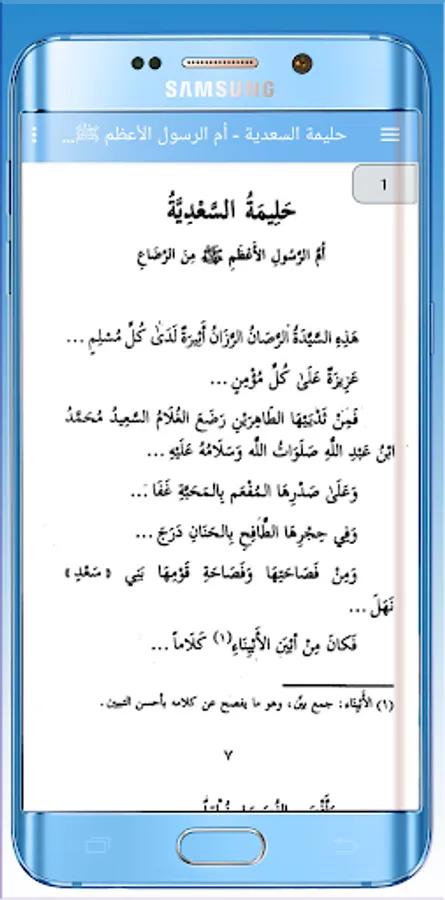 SAMSUNG
حليمة السعدية - أم الرسول الأعظم ﷺ...
1
حَلِيمَةُ السَّعْدِيَّةُ
أُمُّ الرَّسُولِ الأَعْظَمِ ﷺ مِنَ الرَّضَاعِ
هَذِهِ السَّيِّدَةُ الرَّصَانُ الرَّزَانُ أَثِيرَةٌ لَدَىٰ كُلِّ مُسْلِمٍ ...
عَزِيزَةٌ عَلَىٰ كُلِّ مُؤْمِنٍ ...
فَمِنْ ثَدْيَيْهَا الطَّاهِرَيْنِ رَضَعَ الغُلَامُ السَّعِيدُ مُحَمَّدُ
ابْنُ عَبْدِ اللَّهِ صَلَوَاتُ اللَّه وَسَلَامُهُ عَلَيْهِ ...
وَعَلَىٰ صَدْرِهَا المُفْعَمِ بِالمَحَبَّةِ غَفَا ...
وَفِي حِجْرِهَا الطَّافِحِ بِالحَنَانِ دَرَجَ ...
وَمِنْ فَصَاحَتِهَا وَفَصَاحَةِ قَوْمِهَا بَنِي «سَعْدٍ»
نَهَلَ ...
فَكَانَ مِنْ أَبْيَنِ الأَبْيِنَاءِ(١) كَلَاماً ...
(١) الأَبْيِنَاء: جمع بيّن، وهو ما يفصح عن كلامه بأحسن التبيين.
٧